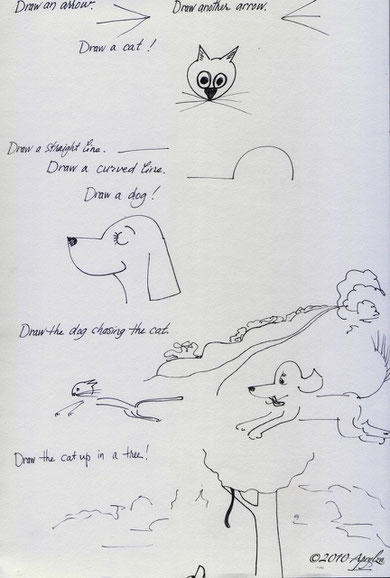 Draw an arrow. Draw another arrow.
Draw a cat!
Draw a straight line.
Draw a curved line.
Draw a dog!
Draw the dog chasing the cat.
Draw the cat up in a tree!
©2010